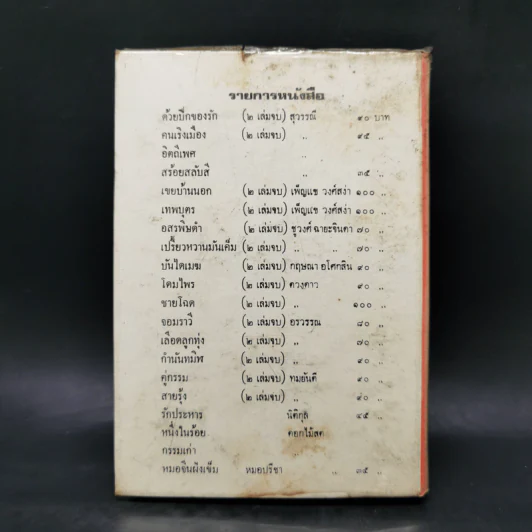 รายการหนังสือ
ด้วยปีกของรัก (๒ เล่มจบ) สุวรรณี ๙๐ บาท
คนเริงเมือง (๒ เล่มจบ) ,, ๙๕ ,,
อิตถีเพศ ,,
สร้อยสลับสี ,, ๓๕ ,,
เขยบ้านนอก (๒ เล่มจบ) เพ็ญแข วงศ์สง่า ๑๐๐ ,,
เทพบุตร (๒ เล่มจบ) เพ็ญแข วงศ์สง่า ๑๐๐ ,,
อสรพิษดำ (๒ เล่มจบ) ชูวงศ์ ฉายะจินดา ๗๐ ,,
เปรี้ยวหวานมันเค็ม (๒ เล่มจบ) ,, ,, ๗๐ ,,
บันไดเมฆ (๒ เล่มจบ) กฤษณา อโศกสิน ๙๐ ,,
โดมไพร (๒ เล่มจบ) ดวงดาว ๙๐ ,,
ชายโฉด (๒ เล่มจบ) ,, ๑๐๐ ,,
จอมราวี (๒ เล่มจบ) อรวรรณ ๘๐ ,,
เลือดลูกทุ่ง (๒ เล่มจบ) ,, ๗๐ ,,
กำนันทมิฬ (๒ เล่มจบ) ,, ๙๐ ,,
คู่กรรม (๒ เล่มจบ) ทมยันตี ๙๐ ,,
สายรุ้ง (๒ เล่มจบ) ,, ๙๐ ,,
รักประหาร นิดิกุล ๔๕ ,,
หนึ่งในร้อย ดอกไม้สด
กรรมเก่า ,,
หมอจีนฝังเข็ม หมอปรีชา ,, ๓๕ ,,